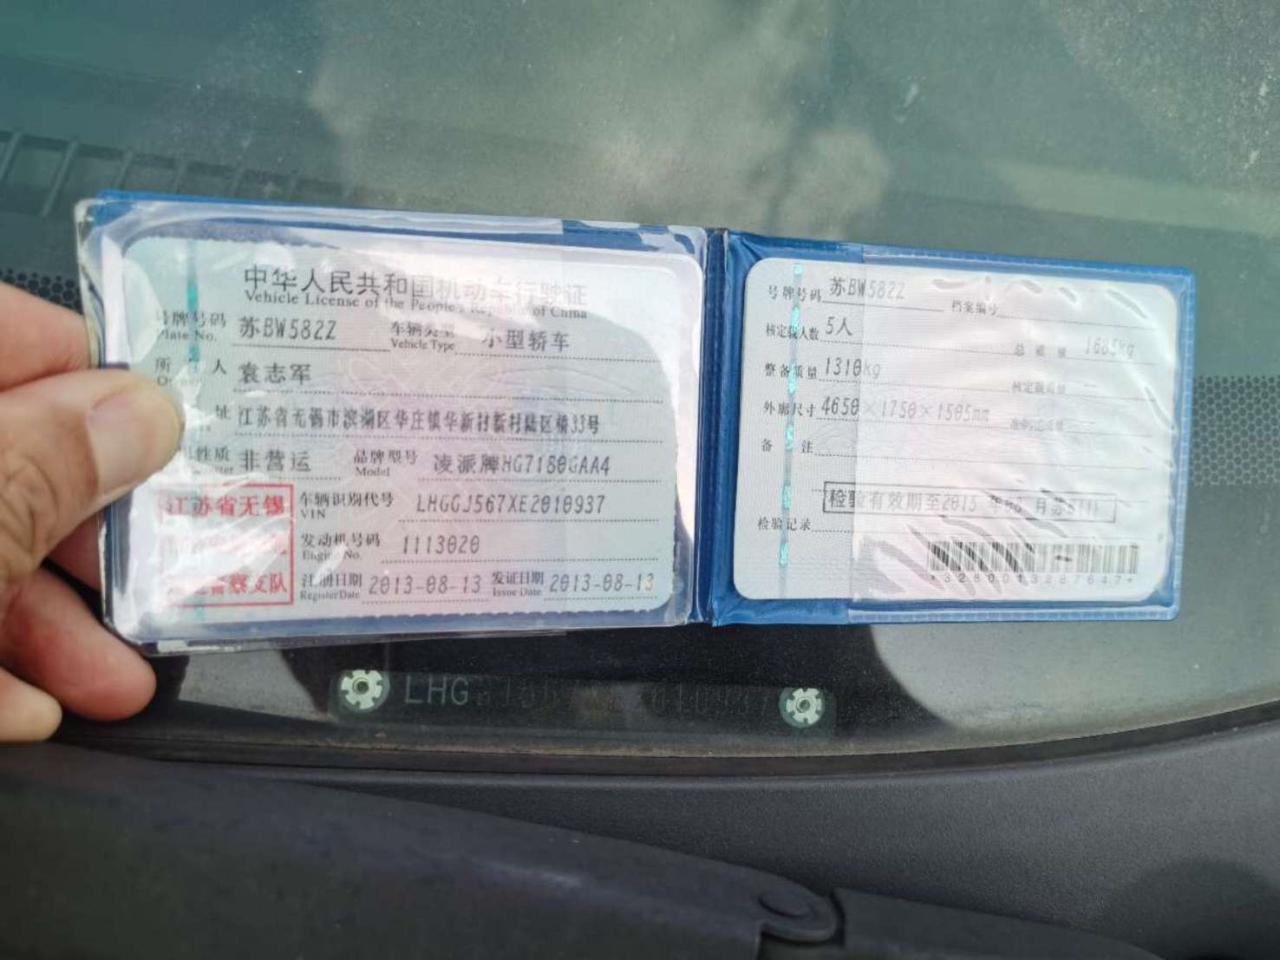 中华人民共和国机动车行驶证
Vehicle License of the People's Republic of China
号牌号码 苏BW582Z 车辆类型 小型轿车
Plate No. Vehicle Type
所有人 袁志军
Owner
址 江苏省无锡市滨湖区华庄镇华新村新村陆区桥33号
性质 非营运 品牌型号 凌派牌HG7180GAA4
Model
江苏省无锡
车辆识别代号 LHGGJ567XE2010937
VIN
发动机号码 1113020
Engine No.
警察支队
注册日期 2013-08-13 发证日期 2013-08-13
Register Date Issue Date
号牌号码 苏BW582Z 档案编号
核定载人数 5人 总质量 1685kg
整备质量 1310kg 核定载质量 --
外廓尺寸 4650×1750×1505mm
备注
检验有效期至2015年08月苏B(1)
检验记录
LHG